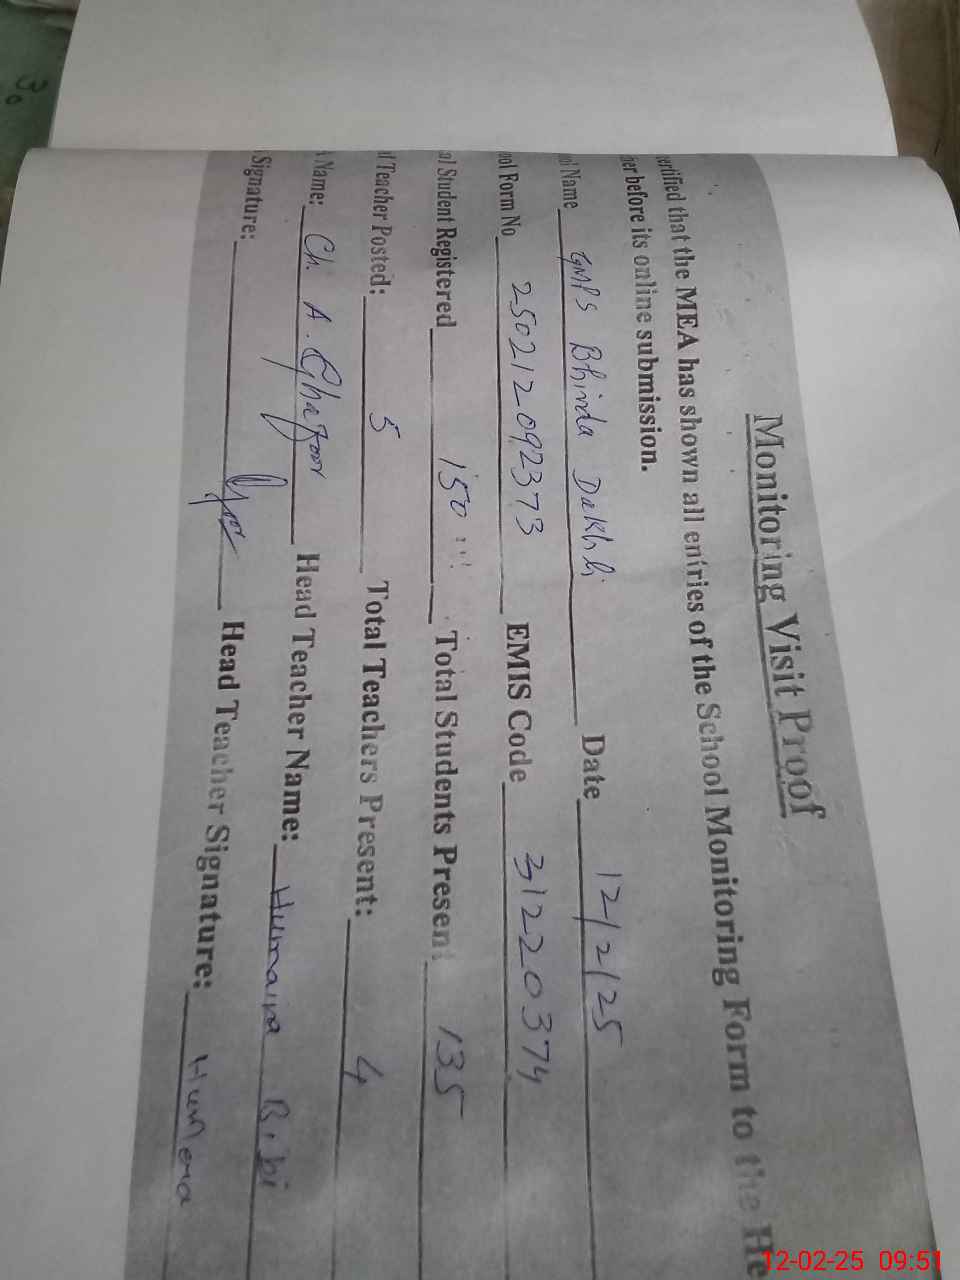 Monitoring Visit Proof
ertified that the MEA has shown all entries of the School Monitoring Form to the He
her before its online submission.
ool Name GMPS Bhinda Dakhli Date 12/2/25
ool Form No 250212092373 EMIS Code 31220374
al Student Registered 150 Total Students Present 135
al Teacher Posted: 5 Total Teachers Present: 4
Name: Ch. A. Ghafoor Head Teacher Name: Humaira Bibi
Signature: Head Teacher Signature: Humera
12-02-25 09:51